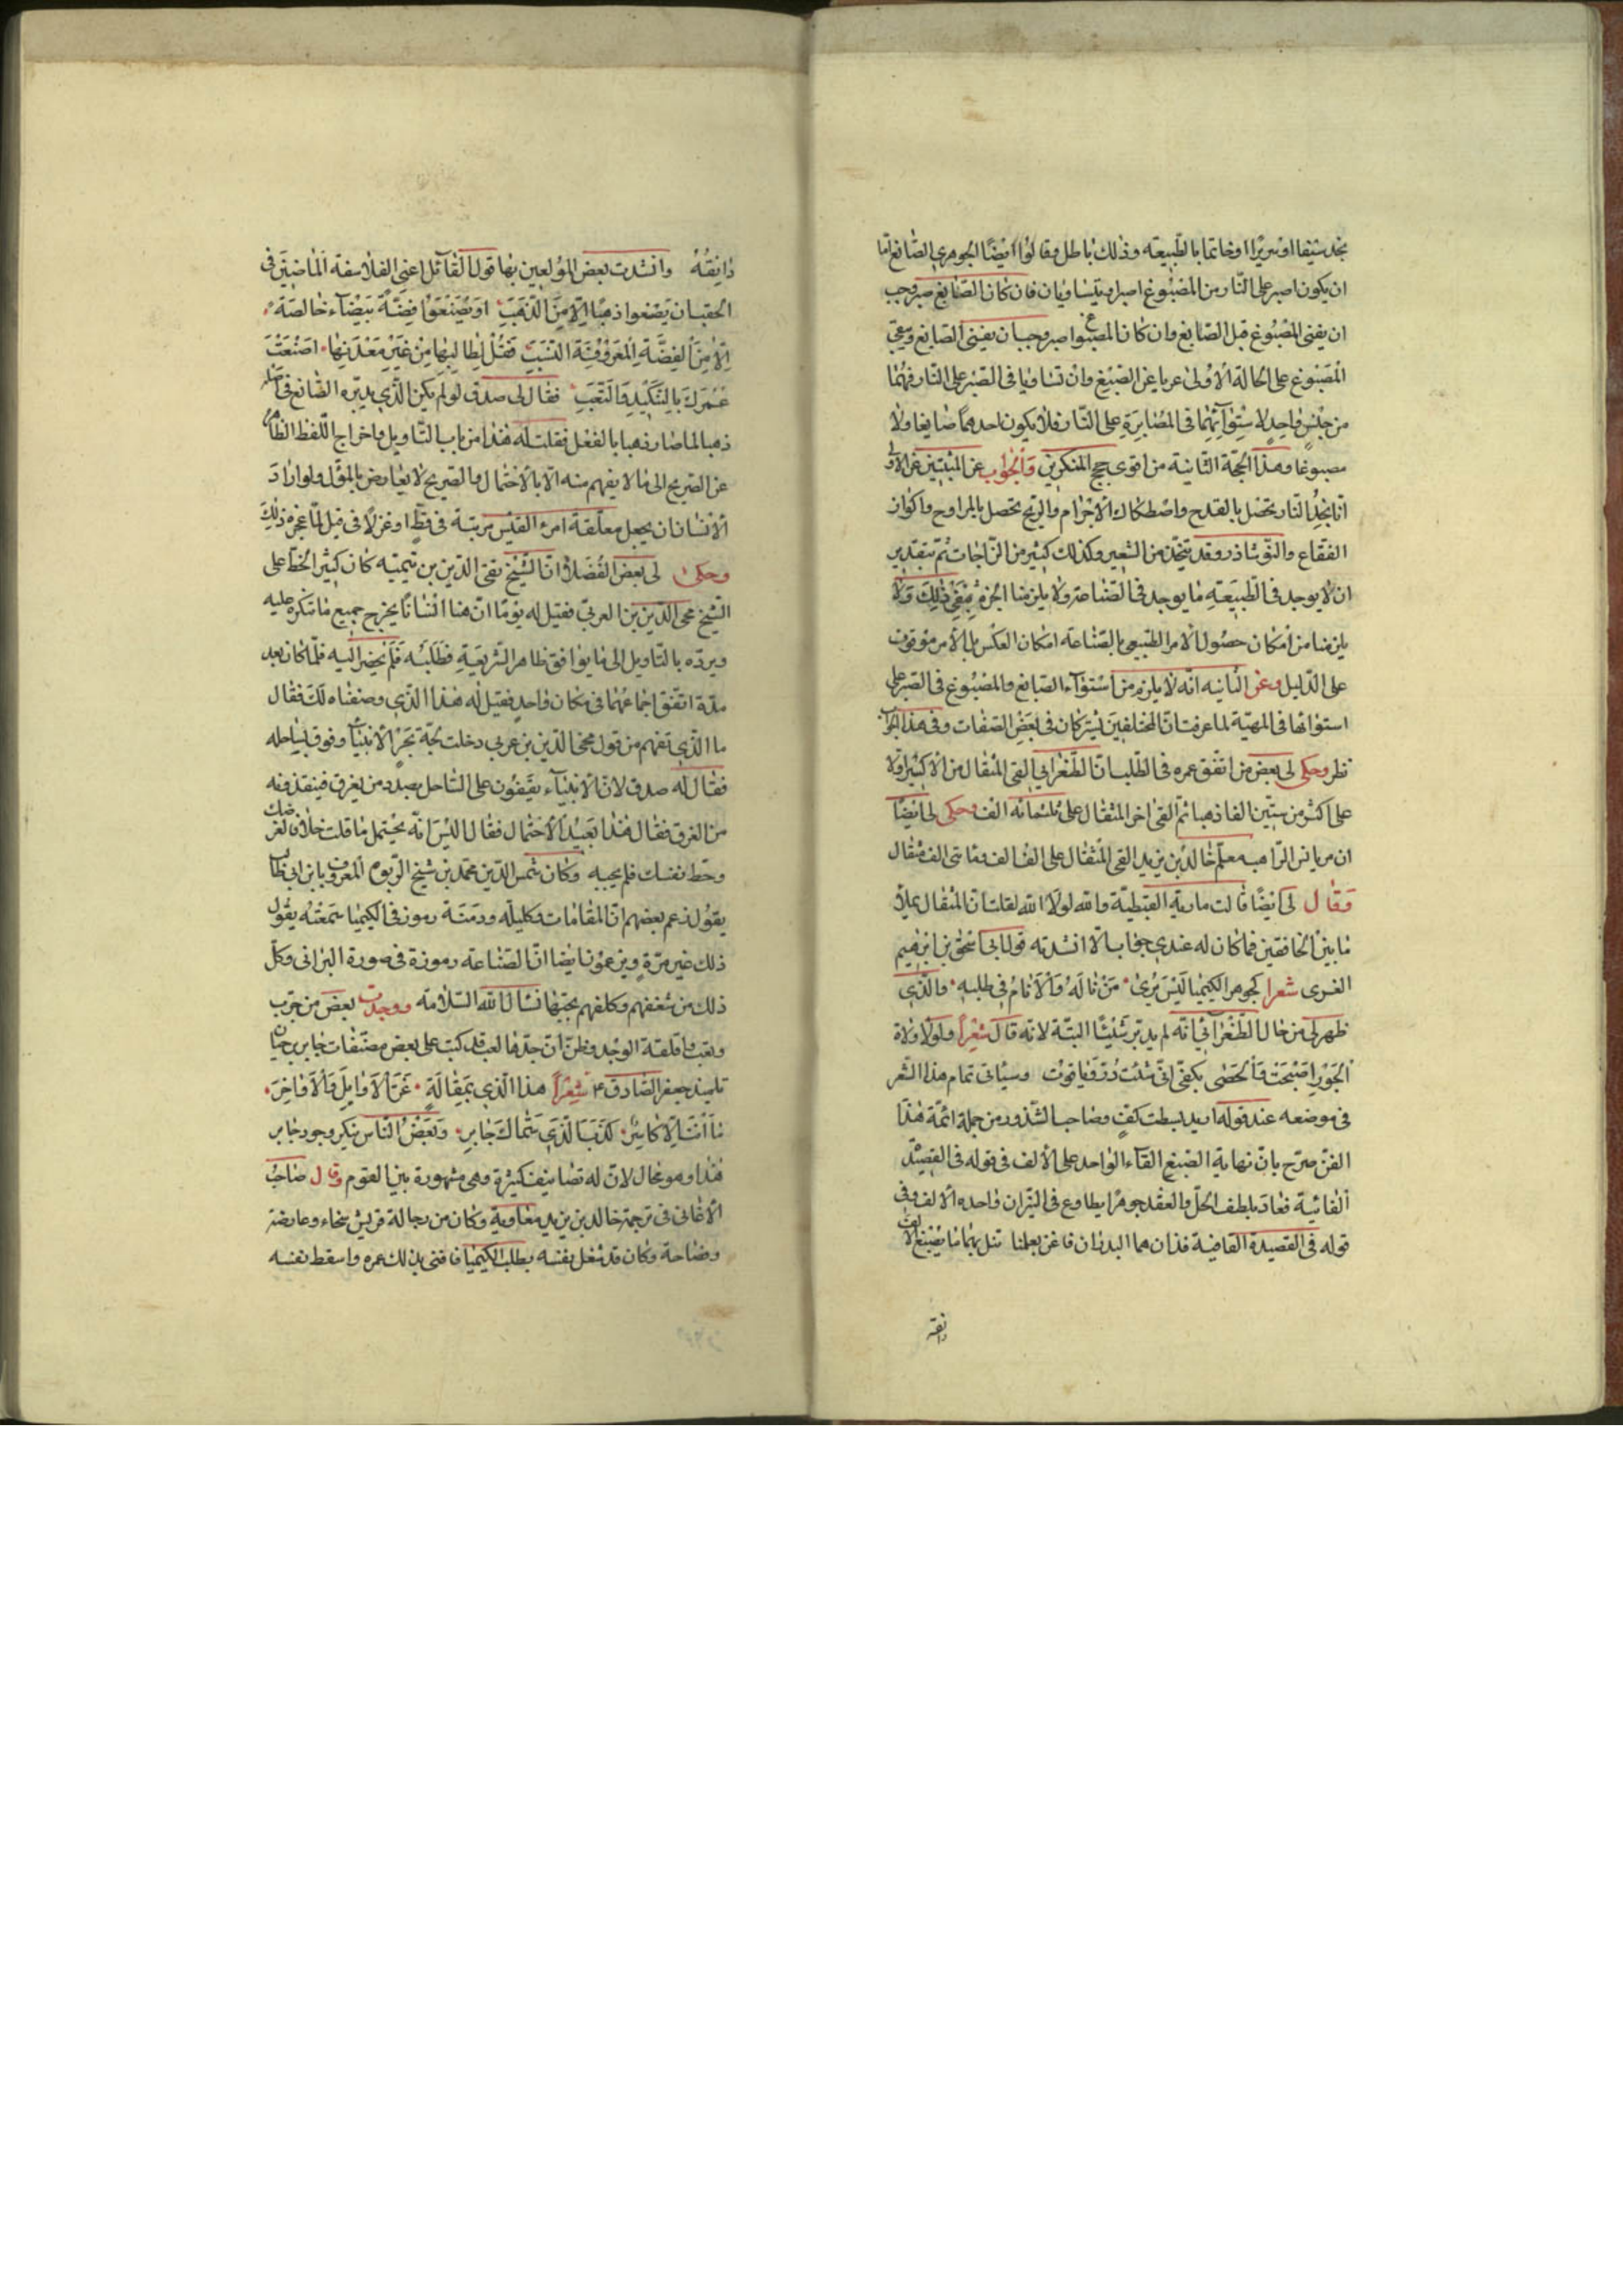 نجد سيفا او سريرا او خاتما بالطبيعة وذلك باطل وقالوا ايضا الجوهر الصابغ اما
ان يكون اصبر على النار من المصبوغ او يتساويان فان كان الصابغ اصبر وجب
ان يفنى المصبوغ قبل الصابغ وان كان المصبوغ اصبر وجب ان يفنى الصابغ ويبقى
المصبوغ على الحالة الاولى عريا عن الصبغ وان تساويا في الصبر على النار فهما
من جنس واحد لاستوائهما في المصابرة على النار فلا يكون احدهما صابغا ولا
مصبوغا وهذه الحجة الثانية من اقوى حجج المنكرين والجواب عن المثبتين عن الاولى
انا نجد النار تحصل بالقدح واصطكاك الاجرام والريح تحصل بالمراوح واكواز
الفقاع والنوشاذر وقد يتخذ من الشعير وكذلك كثير من الزاجات ثم بتقدير
ان لا يوجد في الطبيعة ما يوجد في الصناعة ولا يلزمنا الجزم بنفي ذلك ولا
يلزمنا من امكان حصول الامر الطبيعي بالصناعة امكان العكس بل الامر موقوف
على الدليل وعن الثانية انه لا يلزم من استواء الصابغ والمصبوغ في الصبر على
استوائها في المهية لما عرفت ان المختلفين يشتركان في بعض الصفات وفي هذا الجواب
نظر وحكى لي بعض من انفق عمره في الطلب ان الطغرائي القى المثقال من الاكسير اولا
على اكثر من ستين الفا ذهبا ثم القى اخر المثقال على ثلثمائة الف وحكى لي ايضا
ان مريانس الراهب معلم خالد بن يزيد القى المثقال على الف الف ومائتي الف مثقال
وقال لي ايضا قالت مارية القبطية والله لولا الله لقلت ان المثقال يملا
ما بين الخافقين فما كان له عندي جواب الا انشدته قول ابي اسحق بن ابرهيم
الغزى شعرا كجوهر الكيميا ليس يرى من ناله والانام في طلبه والذي
ظهر لي من حال الطغرائي انه لم يدبر شيئا البتة لانه قال شعرا ولولا ولاة
الجور اصبحت والحصى بكفي انى شئت در وياقوت وسياتي تمام هذا الشعر
في موضعه عند قوله اريد بسطت كف وصاحب الشذور من جملة ائمة هذا
الفن صرح بان نهاية الصبغ القاء الواحد على الالف في قوله في القصيدة
الفائية فعاد بلطف الحل والعقد جوهرا يطاوع في النيران واحده الالف وفي
قوله في القصيدة القافية فذان هما البدران فاغن بعلمنا تنل بهما ما يصبغ الالف
دانقه
دانقه وانشدت بعض المولعين بها قول القائل اعنى الفلاسفة الماضين في
الحقب ان يصنعوا ذهبا الا من الذهب او يصنعوا فضة بيضاء خالصة
الا من الفضة المعروفة النسب فقل لطالبها من غير معدنها اضعت
عمرك بالتنكيد والتعب فقال لي صدق لو لم يكن الذي يدبره الصانع في
ذهبا لما صار ذهبا بالفعل فقلت له هذا من باب التاويل واخراج اللفظ الظاهر
عن الصريح الى ما لا يفهم منه الا بالاحتمال والصريح لا يعارض بالمؤول ولو اراد
الانسان ان يجعل معلقة امرء القيس مرثية في قط او غزلا في فيل لما عجزه ذلك
وحكى لي بعض الفضلا ان الشيخ تقي الدين بن تيمية كان كثير الحط على
الشيخ محي الدين بن العربي فقيل له يوما ان هنا انسانا يخرج جميع ما تنكره عليه
ويرده بالتاويل الى ما يوافق ظاهر الشريعة فطلبه فلم يحضر اليه فلما كان بعد
مدة اتفق اجماعهما في مكان واحد فقيل له هذا الذي وصفناه لك فقال
ما الذي تفهم من قول محي الدين بن عربي دخلت لجة بحر الانبياء وقوف بساحله
فقال له صدق لان الانبياء يقفون على الساحل بصدد من يغرق فينقذونه
من الغرق فقال هذا بعيد الاحتمال فقال اليس انه يحتمل ما قلت خلاف لغرضك
وحظ نفسك فلم يجبه وكان شمس الدين محمد بن شيخ الربوه المعروف بابن ابي طالب
يقول زعم بعضهم ان المقامات وكليله ودمنة رموز في الكيميا سمعته يقول
ذلك غير مرة ويزعمون ايضا ان الصناعة رموزة في صورة البراني وكل
ذلك من شغفهم وكلفهم بحبها نسال الله السلامة ووجدت بعض من جرب
وتعب واقلقه الوجد وظن ان جدها لعب قد كتب على بعض مصنفات جابر بن حيان
تلميذ جعفر الصادق ع شعرا هذا الذي بمقاله غر الاوايل والاواخر
ما انت الا كاسر كذب الذي سماك جابر وبعض الناس ينكر وجود جابر
هذا وهو محال لان له تصانيف كثيرة وهي مشهورة بين القوم وقال صاحب
الاغاني في ترجمة خالد بن يزيد بن معاوية وكان من رجالة قريش سخاء وعارضة
وفصاحة وكان قد شغل نفسه بطلب الكيميا فافنى بذلك عمره واسقط نفسه